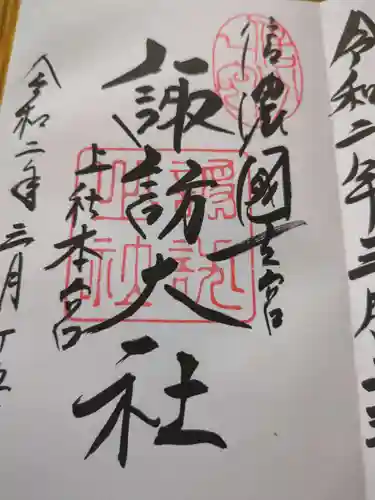 令和二年三月二三
信濃國一之宮
諏訪大社
上社本宮
令和二年三月十五